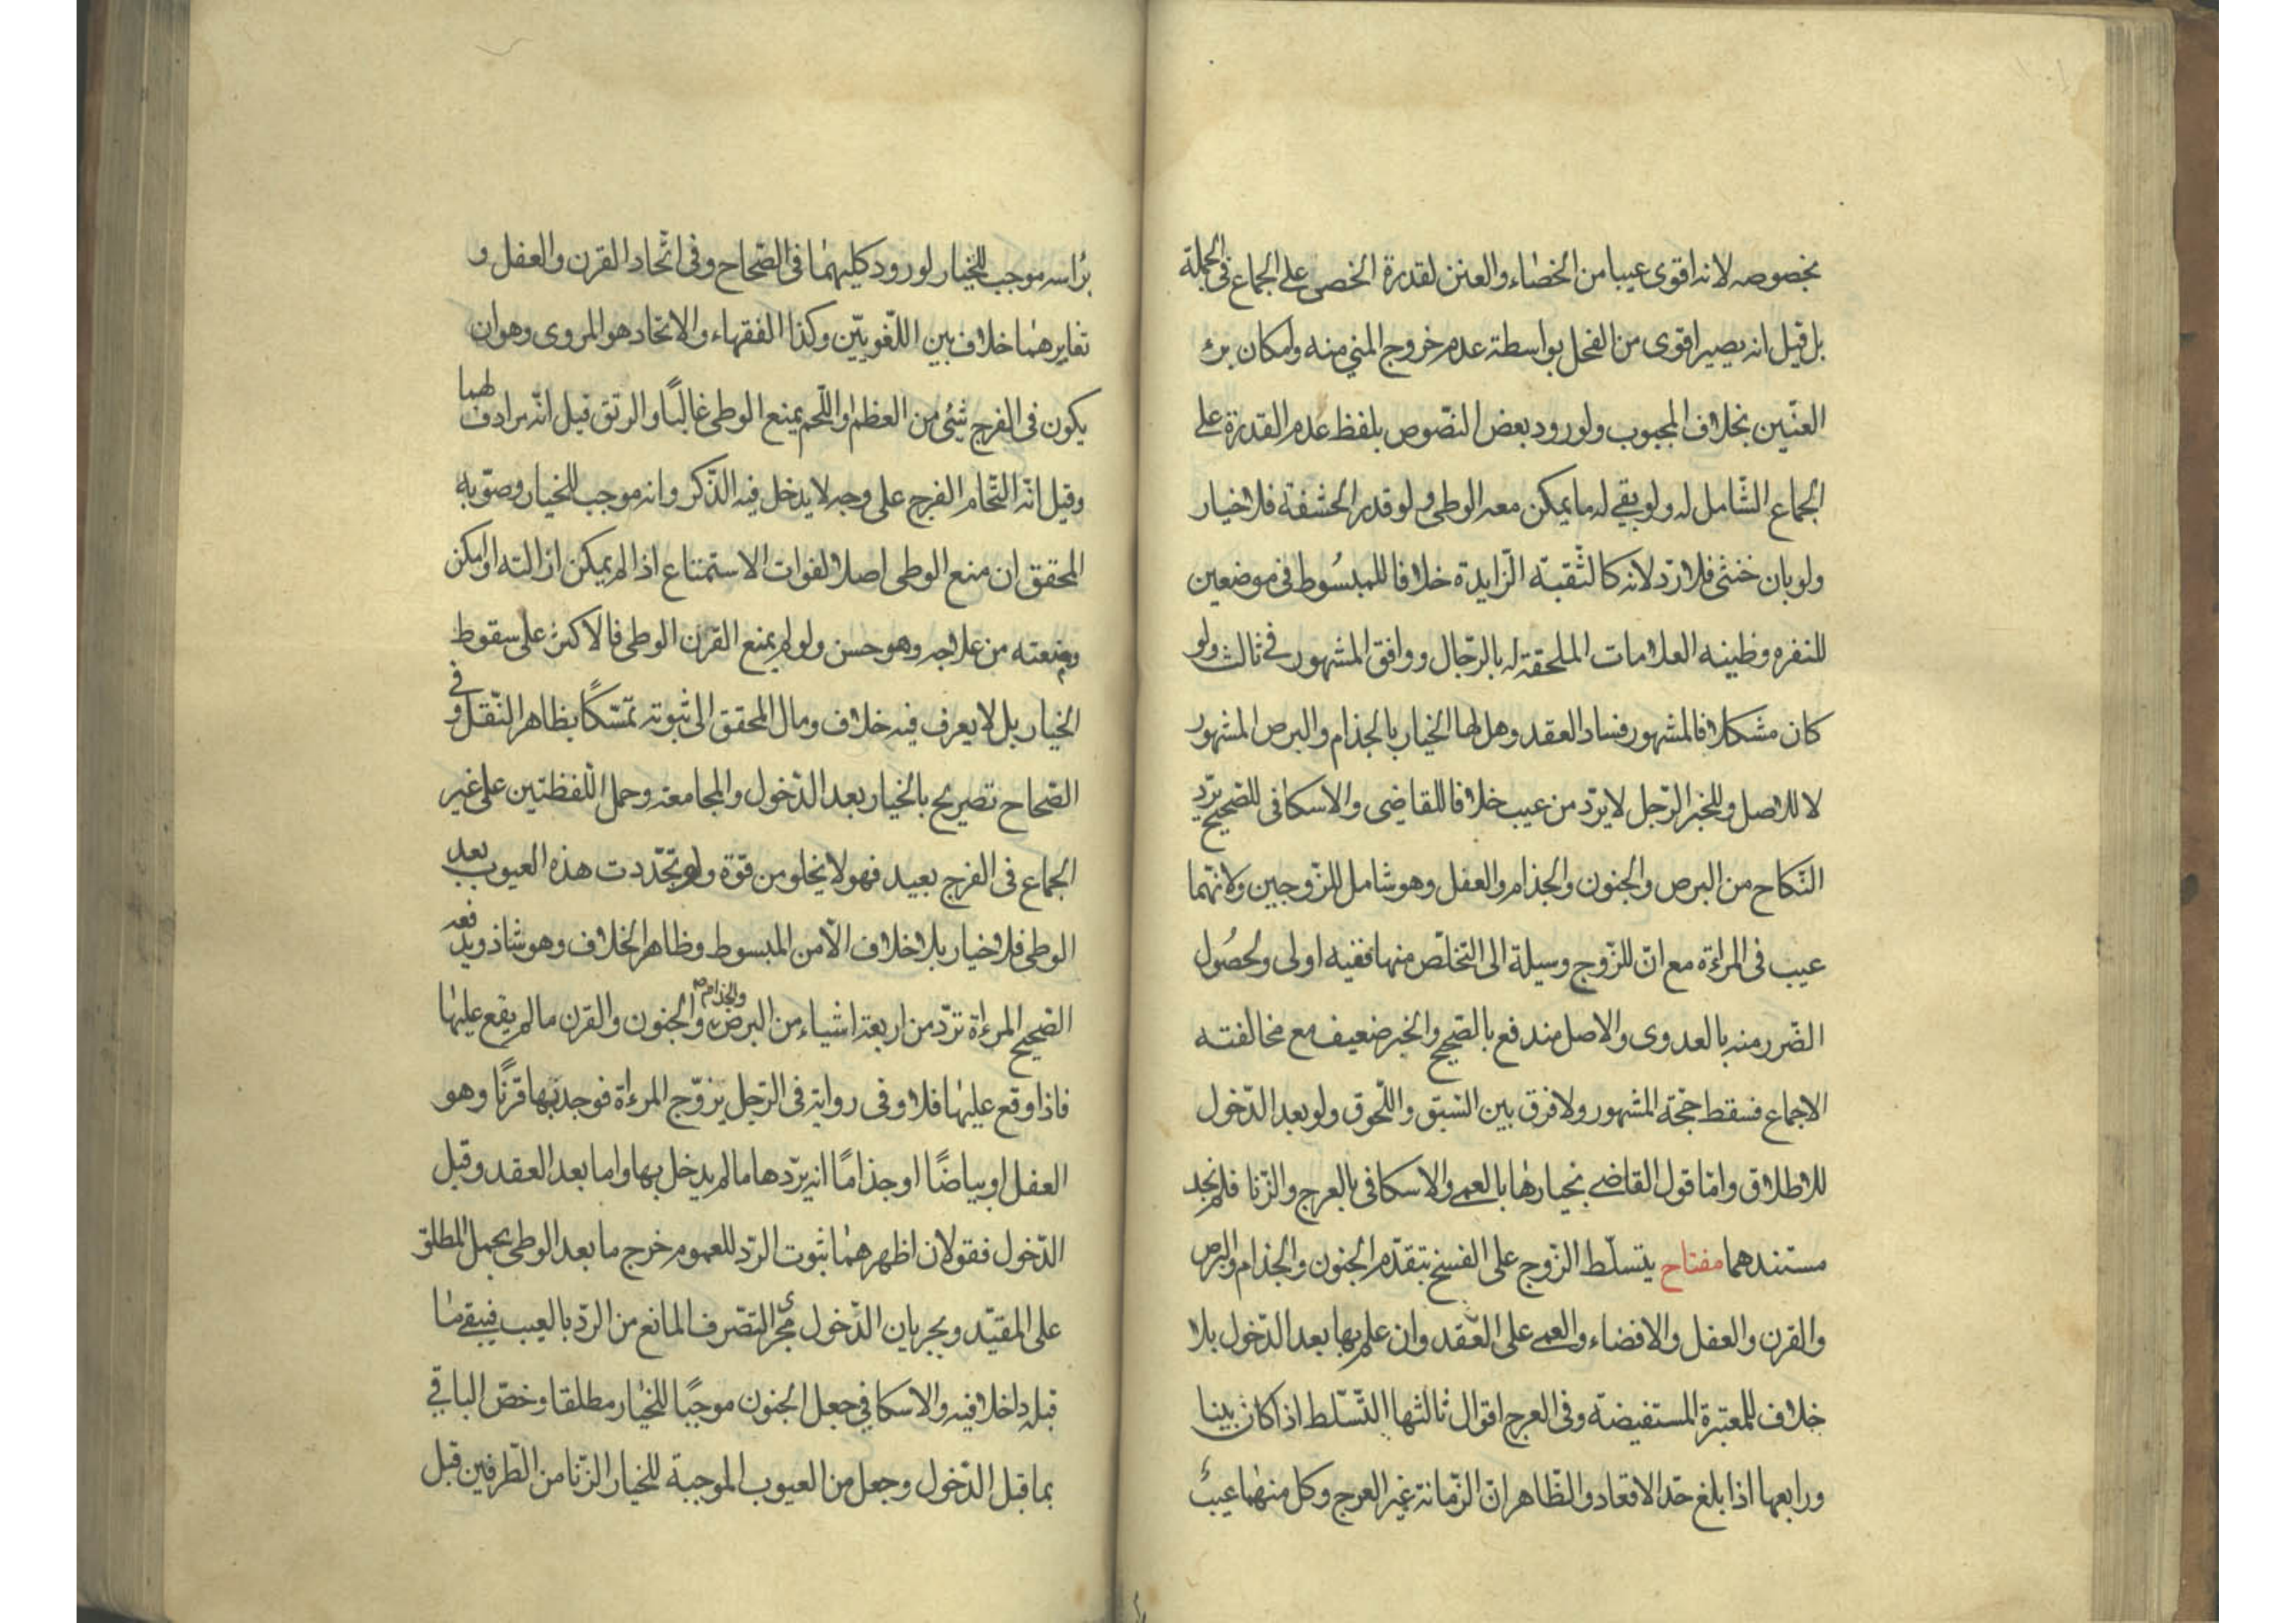 بخصوصه لانه اقوى عيبا من الخصاء والعنن لقدرة الخصى على الجماع فى الجملة
بل قيل انه يصير اقوى من الفحل بواسطة عدم خروج المني منه وامكان برء
العنّين بخلاف المجبوب ولورود بعض النّصوص بلفظ عدم القدرة على
الجماع الشّامل له ولو بقے له ما يمكن معه الوطى ولو قدر الحشفة فلا خيار
ولو بان خنثى فلا ردّ لانه كالثّقبة الزّايدة خلافا للمبسُوط فى موضعين
للنفرة وظنيه العلامات الملحقة له بالرّجال ووافق المشهور فے ثالث ولو
كان مشكلا فالمشهور فساد العقد وهل لها الخيار بالجذام والبرص المشهور
لا للاصل وللخبر الرّجل لا يردّ من عيب خلافا للقاضى والاسكافى للصّحيح يردّ
النّكاح من البرص والجنون والجذام والعفل وهو شامل للزّوجين ولانّهما
عيب فى المرءة مع انّ للزّوج وسيلة الى التّخلّص منها ففيه اولى ولحصُول
الضّرر منه بالعدوى والاصل مندفع بالصّحيح والخبر ضعيف مع مخالفته
الاجماع فسقط حجّة المشهور ولا فرق بين السّبق واللّحوق ولو بعد الدّخول
للاطلاق وامّا قول القاضے بخيارها بالعمے والاسكافى بالعرج والزّنا فلم نجد
مستندهما مفتاح يتسلّط الزّوج على الفسخ بتقدّم الجنون والجذام والبرص
والقرن والعفل والافضاء والعمے على العقد وان علم بها بعد الدّخول بلا
خلاف للمعتبرة المستفيضة وفى العرج اقوال ثالثها التّسلّط اذا كان بينا
ورابعها اذا بلغ حدّ الاقعاد والظّاهر انّ الزّمانة غير العرج وكل منهما عيب
براسه موجب للخيار لورود كليهما فى الصّحاح وفى اتّحاد القرن والعفل و
تغايرهما خلاف بين اللّغويّين وكذا الفقهاء والاتحاد هو المروى وهو ان
يكون فى الفرج شئ من العظم او اللّحم يمنع الوطى غالبًا والرتق قيل انّه مرادف لهما
وقيل انّه التحام الفرج على وجه لا يدخل فيه الذّكر وانه موجب للخيار وصوّبه
المحقق ان منع الوطى اصلا لفوات الاستمتاع اذا لم يمكن ازالته او امكن
ومنعته من علاجه وهو حسن ولو لم يمنع القرن الوطى فالاكثر على سقوط
الخيار بل لا يعرف فيه خلاف ومال المحقق الى ثبوته تمسّكًا بظاهر النّقل وفے
الصّحاح تصريح بالخيار بعد الدّخول والمجامعة وحمل اللّفظتين على غير
الجماع فى الفرج بعيد فهو لا يخلو من قوّة ولو تجدّدت هذه العيوب بعد
الوطى فلا خيار بلا خلاف الّا من المبسوط وظاهر الخلاف وهو شاذ ويدفعه
الصّحيح المرءة تردّ من اربعة اشياء من البرص والجذام والجنون والقرن ما لم يقع عليها
فاذا وقع عليها فلا وفى رواية فى الرّجل يزوّج المرءة فوجد بها قرنًا وهو
العفل او بياضًا او جذامًا انه يردّها ما لم يدخل بها واما بعد العقد وقبل
الدّخول فقولان اظهرهما ثبوت الرّد للعموم خرج ما بعد الوطى بحمل المطلق
على المقيّد وبجريان الدّخول مجرى التصّرف المانع من الردّ بالعيب فيبقے ما
قبله داخلا فيه والاسكافي جعل الجنون موجبًا للخيار مطلقا وخصّ الباقي
بما قبل الدّخول وجعل من العيوب الموجبة للخيار الزّنا من الطّرفين قبل